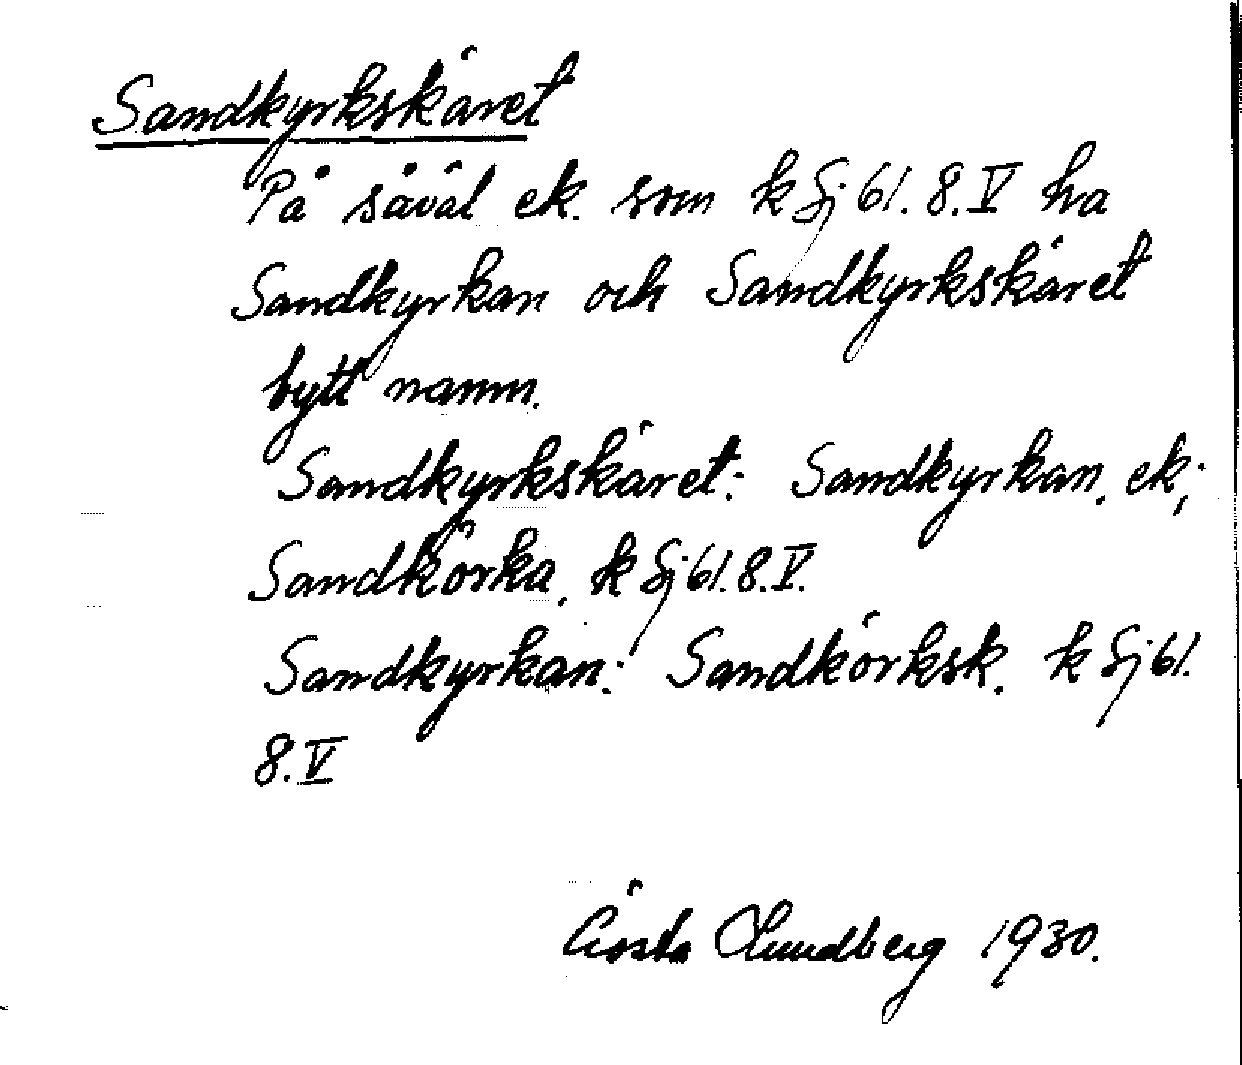 Sandkyrkskäret
På såväl ek. som k Sj 61. 8. V ha
Sandkyrkan och Sandkyrkskäret
bytt namn.
Sandkyrkskäret: Sandkyrkan, ek;
Sandkörka, k Sj 61. 8. V.
Sandkyrkan: Sandkörksk. k Sj 61.
8. V
Gösta Lundberg 1930.